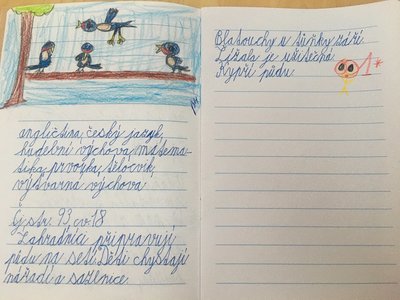 angličtina, český jazyk,
hudební výchova, matema-
tika, prvouka, tělocvik,
výtvarná výchova
Čj str. 93, cv. 18
Zahradníci připravují
půdu na setí. Děti chystají
nářadí a sazenice.
Blatouchy u tůňky září.
Žížala je užitečná.
Kypří půdu.
1*